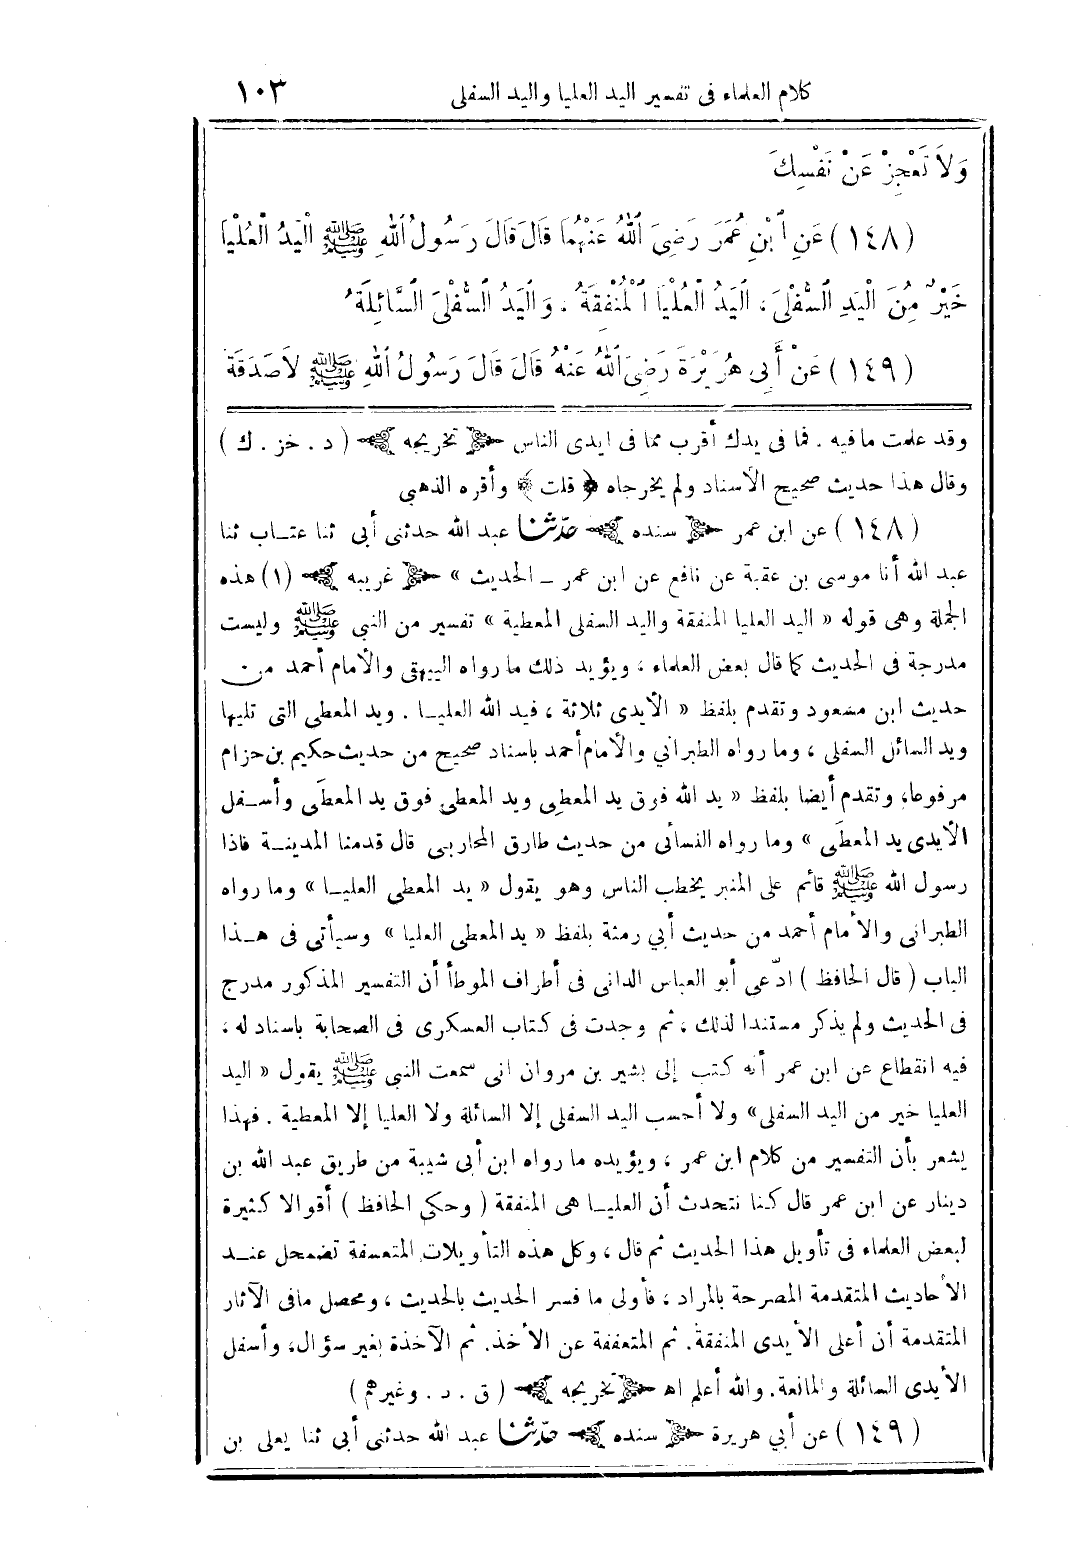 كلام العلماء فى تفسير اليد العليا واليد السفلى ١٠٣
وَلاَ تَعْجِزْ عَنْ نَفْسِكَ
(١٤٨) عَنِ ٱبْنِ عُمَرَ رَضِىَ ٱللهُ عَنْهُمَا قَالَ قَالَ رَسُولُ ٱللهِ ﷺ الْيَدُ الْعُلْيَا
خَيْرٌ مِنَ الْيَدِ السُّفْلَى، الْيَدُ الْعُلْيَا الْمُنْفِقَةُ . وَالْيَدُ السُّفْلَى السَّائِلَةُ
(١٤٩) عَنْ أَبِى هُرَيْرَةَ رَضِىَ ٱللهُ عَنْهُ قَالَ قَالَ رَسُولُ ٱللهِ ﷺ لاَصَدَقَةَ
وقد علمت ما فيه . فما فى يدك أقرب مما فى ايدى الناس ﴿ تخريجه ﴾ ( د . خز . ك )
وقال هذا حديث صحيح الأسناد ولم يخرجاه ﴿ قلت ﴾ وأقره الذهبي
(١٤٨) عن ابن عمر ﴿ سنده ﴾ حدّثنا عبد الله حدثنى أبى ثنا عتـاب ثنا
عبد الله أنا موسى بن عقبة عن نافع عن ابن عمر ــ الحديث » ﴿ غريبه ﴾ (١) هذه
الجملة وهى قوله « اليد العليا المنفقة واليد السفلى المعطية » تفسير من النبي ﷺ وليست
مدرجة فى الحديث كما قال بعض العلماء ، ويؤيد ذلك ما رواه البيهقى والأمام أحمد من
حديث ابن مسعود وتقدم بلفظ « الأيدى ثلاثة ، فيد الله العليـا . ويد المعطى التى تليها
ويد السائل السفلى ، وما رواه الطبراني والأمام أحمد باسناد صحيح من حديث حكيم بن حزام
مرفوعا، وتقدم أيضا بلفظ « يد الله فوق يد المعطِى ويد المعطى فوق يد المعطَى وأسـفل
الأيدى يد المعطَى » وما رواه النسائى من حديث طارق المحاربى قال قدمنا المدينـة فاذا
رسول الله ﷺ قائم على المنبر يخطب الناس وهو يقول « يد المعطى العليـا » وما رواه
الطبرانى والأمام أحمد من حديث أبي رمثة بلفظ « يد المعطى العليا » وسيأتى فى هـذا
الباب ( قال الحافظ ) ادّعى أبو العباس الدانى فى أطراف الموطأ أن التفسير المذكور مدرج
فى الحديث ولم يذكر مستندا لذلك ، ثم وجدت فى كتاب العسكرى فى الصحابة باسناد له ،
فيه انقطاع عن ابن عمر أنه كتب إلى بشير بن مروان انى سمعت النبي ﷺ يقول « اليد
العليا خير من اليد السفلى» ولا أحسب اليد السفلى إلا السائلة ولا العليا إلا المعطية . فهذا
يشعر بأن التفسير من كلام ابن عمر ، ويؤيده ما رواه ابن أبى شيبة من طريق عبد الله بن
دينار عن ابن عمر قال كنا نتحدث أن العليـا هى المنفقة ( وحكى الحافظ ) أقوالا كثيرة
لبعض العلماء فى تأويل هذا الحديث ثم قال ، وكل هذه التأويلات المتعسفة تضمحل عنـد
الأحاديث المتقدمة المصرحة بالمراد ، فأولى ما فسر الحديث بالحديث ، ومحصل مافى الآثار
المتقدمة أن أعلى الأيدى المنفقة. ثم المتعففة عن الأخذ. ثم الآخذة بغير سؤال، وأسفل
الأيدى السائلة والمانعة. والله أعلم اهـ ﴿ تخريجه ﴾ ( ق . د . وغيرهم )
(١٤٩) عن أبي هريرة ﴿ سنده ﴾ حدّثنا عبد الله حدثنى أبى ثنا يعلى بن